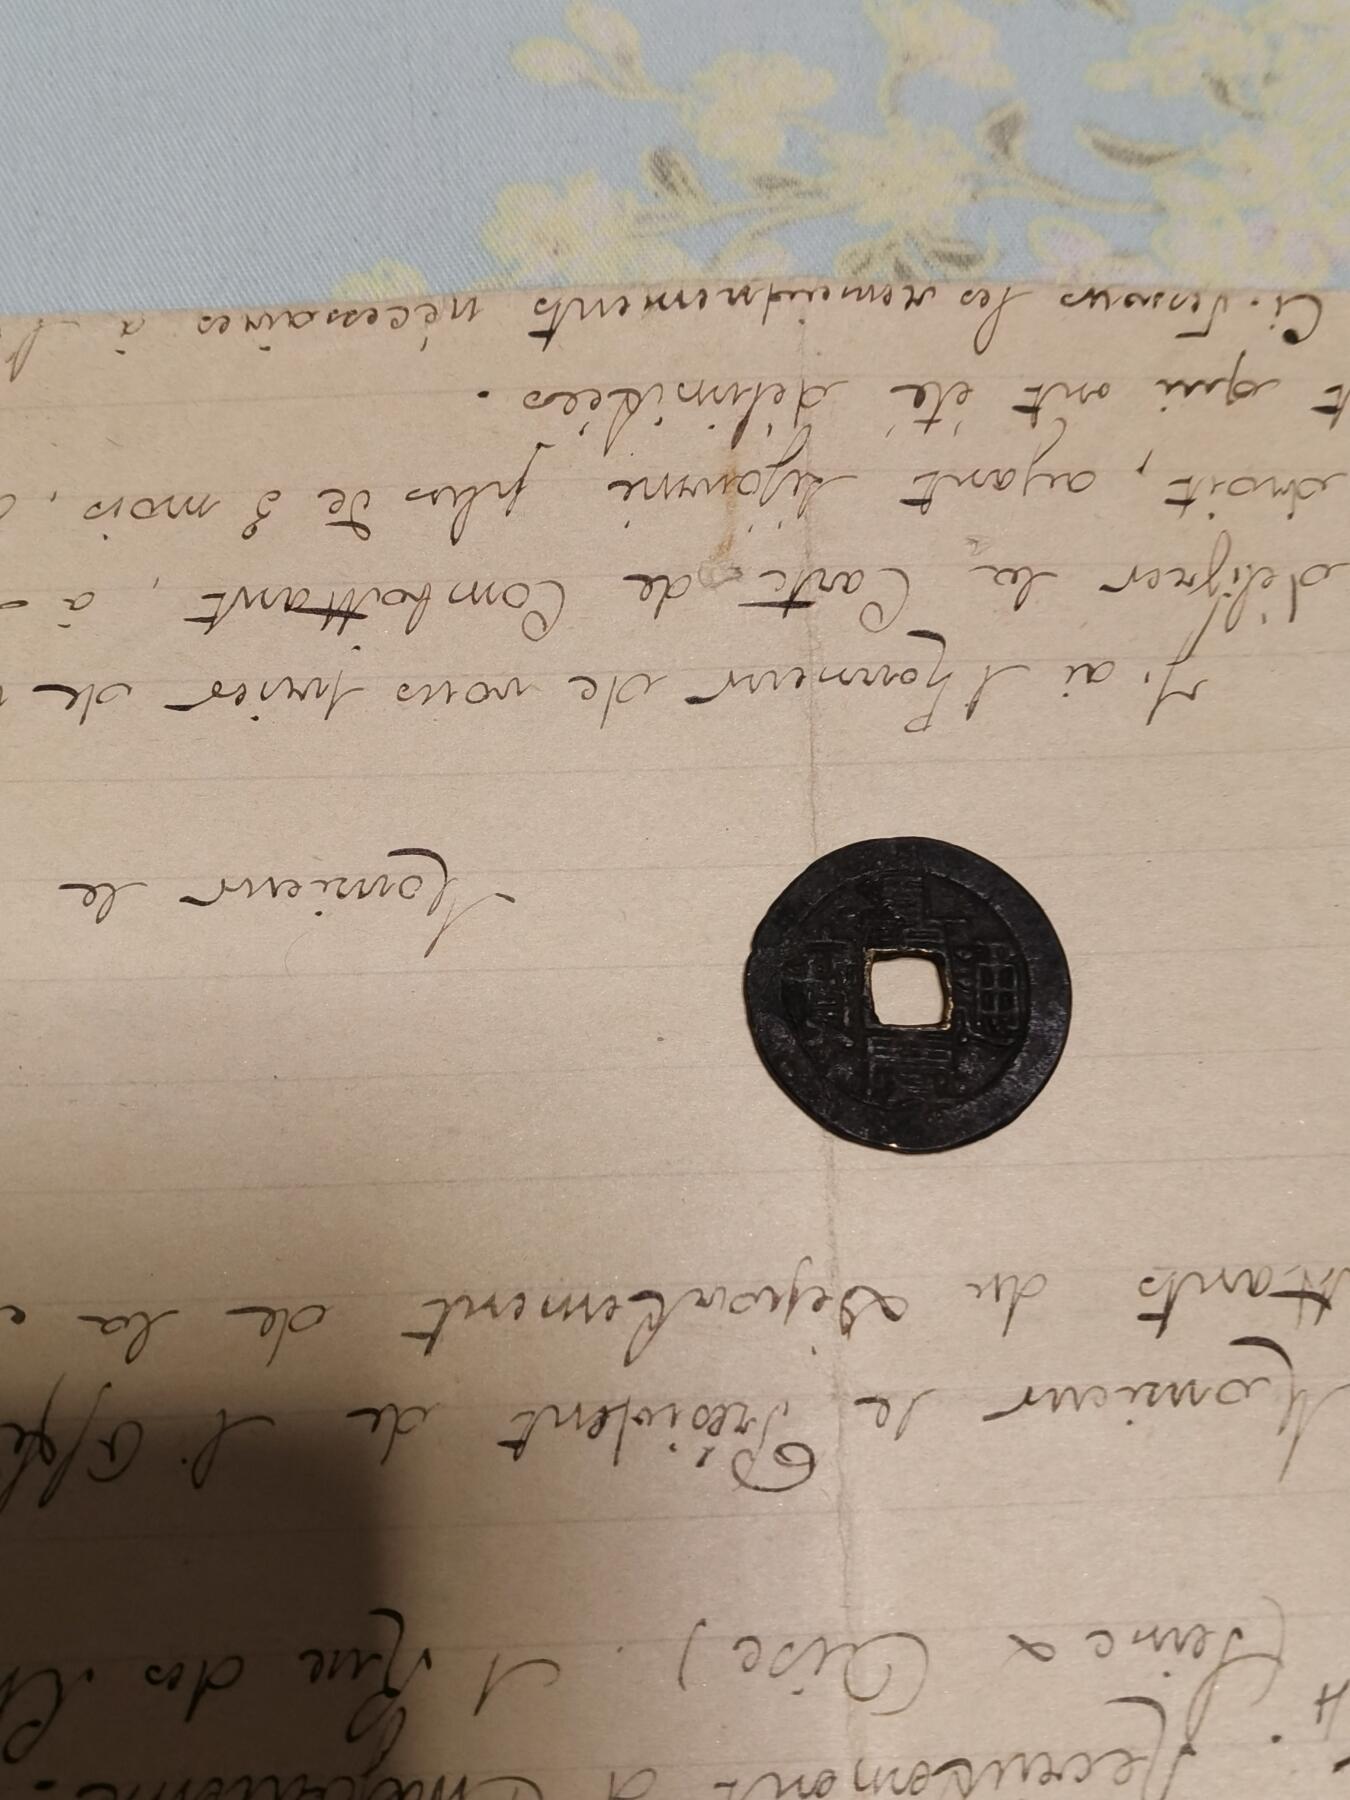 Recrutement d
(Seine & Oise). 1 Rue des
Monsieur le Président de l'Offi
ttants du Département de la
Monsieur le
J'ai l'honneur de vous prier de
délivrer la Carte de Combattant, à
droit, ayant séjourné plus de 3 mois,
t qui ont été délimitées.
Ci-dessous les renseignements nécessaires à l